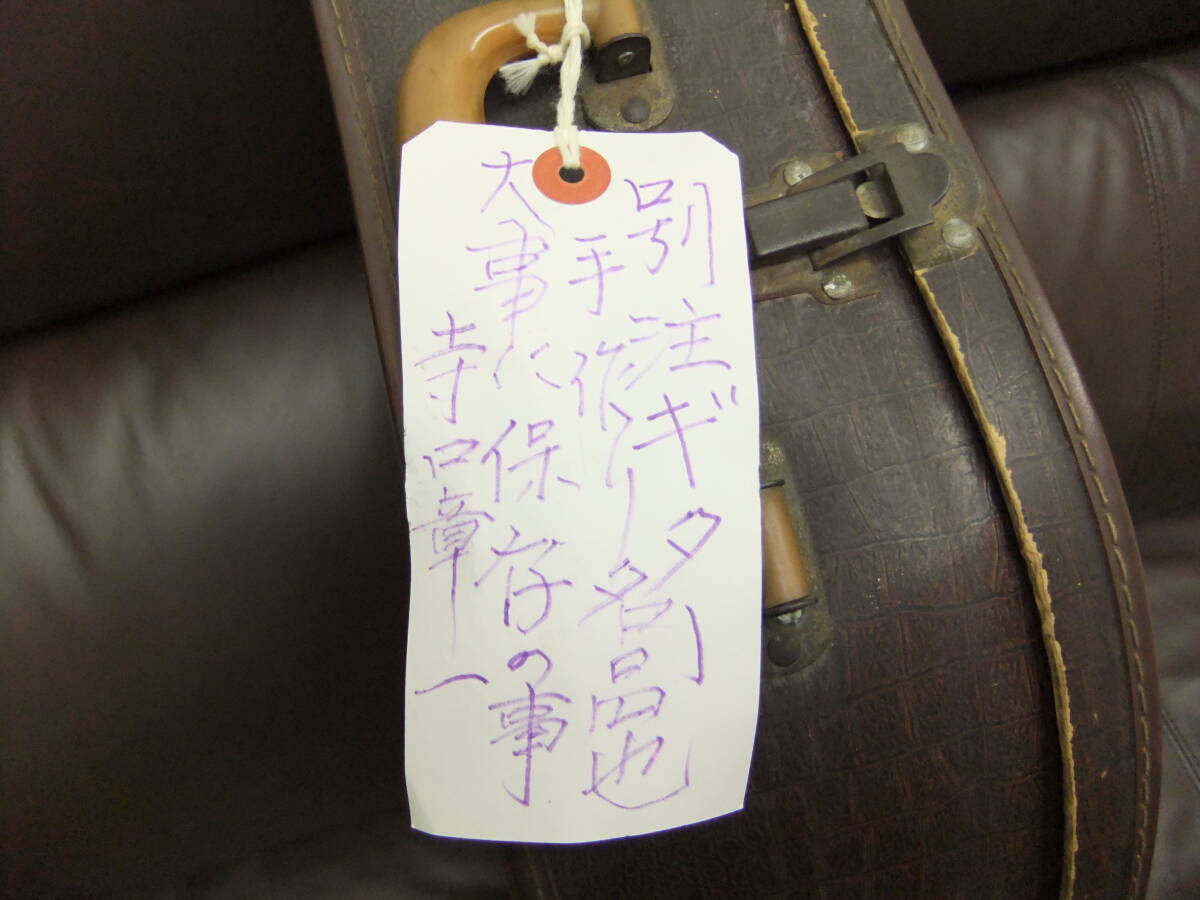 別注ギター
手作りー名品也
大事に保存の事
寺口章一